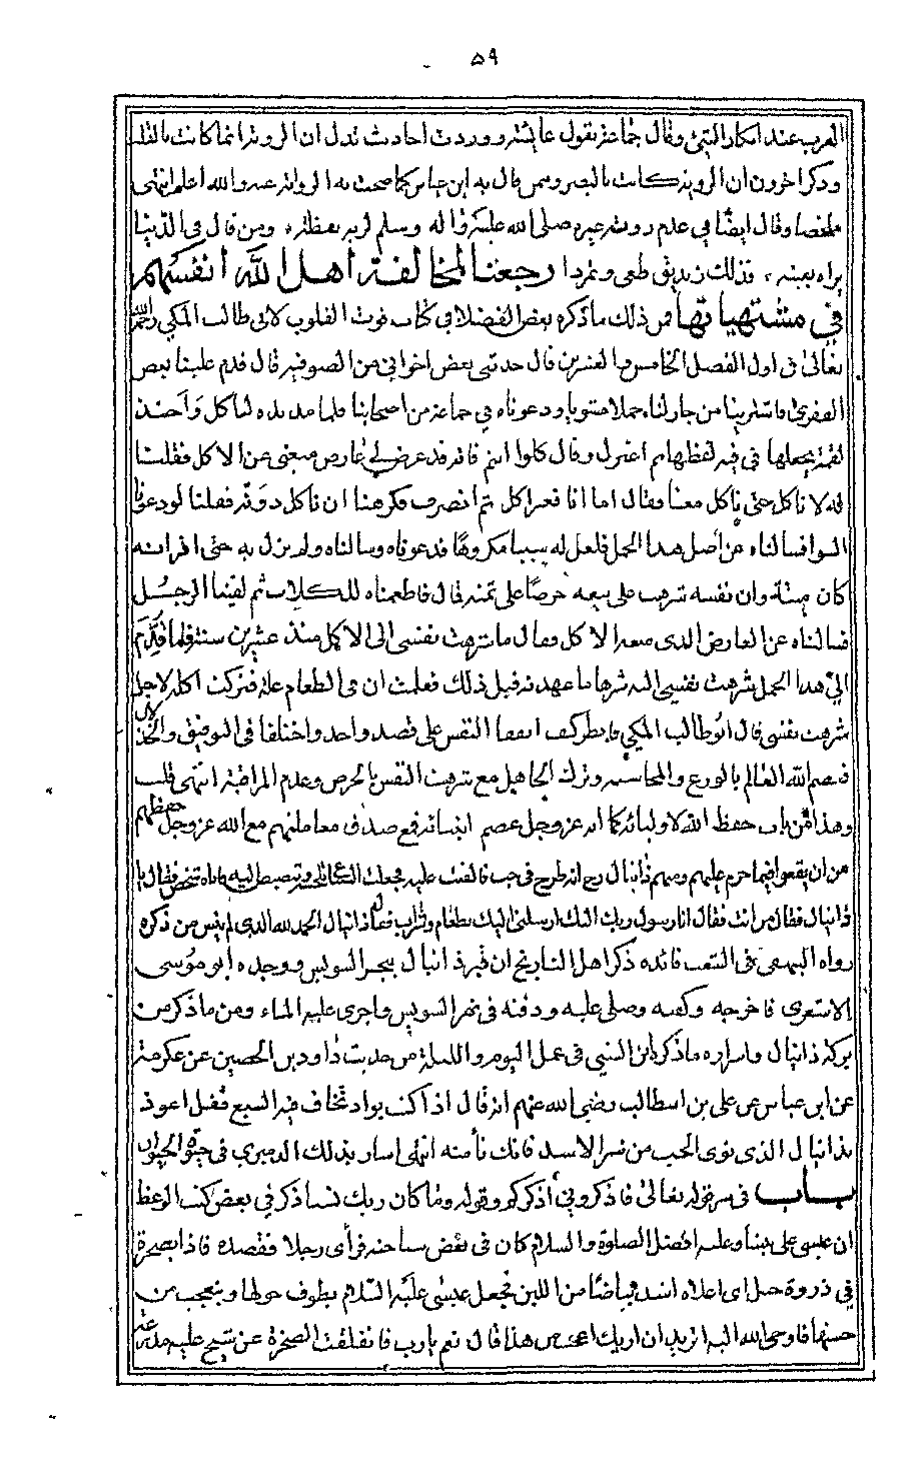 ٥٩
العرب عند انكار النبي وقال جماعة بقول عايشة ووردت احاديث تدل ان الروية انما كانت بالقلب
وذكر اخرون ان الروية كانت بالبصر وممن قال به ابن عباس كما صحت به الرواية عنه والله اعلم انتهى
ملخصا وقال ايضًا في عدم رويته غيره صلى الله عليه وآله وسلم لربه يقظة، ومن قال في الدنيا
يراه بعينه، فذلك زنديق طغى وتمردا رجعنا لمخالفة اهل الله انفسهم
في مشتهياتها فمن ذلك ما ذكره بعض الفضلا في كتاب قوت القلوب لابي طالب المكي رحمه الله
تعالى في اول الفصل الخامس والعشرين قال حدثني بعض اخواني من الصوفية قال قدم علينا بعض
الفقرى فاشترينا من جار لنا جملا مشويا ودعوناه في جماعة من اصحابنا فلما مد يده لياكل واخذ
لقمة يجعلها في فيه لفظها ثم اعتزل وقال كلوا انتم فانه قد عرض لي عارض منعني عن الاكل فقلنا
له لا ناكل حتى تاكل معنا فقال اما انا فغير اكل ثم انصرف فكرهنا ان ناكل دونه فقلنا لو دعونا
الشوا فسالناه عن اصل هذا الجمل فلعل له سببا مكروها فدعوناه وسالناه ولم نزل به حتى اقر انه
كان ميتة وان نفسه شرهت على بيعه حرصًا على ثمنه قال فاطعمناه للكلاب ثم لقينا الرجل
فسالناه عن العارض الذى منعه الاكل فقال ما شرهت نفسي الى الاكل منذ عشرين سنة فلما قدم
الىّ هذا الجمل شرهت نفسي اليه شرها ما عهدته قبل ذلك فعلمت ان في الطعام علة فتركت اكله لاجل
شرهت نفسي قال ابو طالب المكي فانظر كيف اتفقا النفس على قصد واحد واختلفا في التوفيق والخذلان
فعصم الله العالم بالورع والمحاسبه وترك الجاهل مع شرهت النفس بالحرص وعدم المراقبة انتهى قلت
وهذا من باب حفظ الله لاوليائه كما انه عز وجل عصم انبيائه فمع صدق معاملتهم مع الله عز وجل حفظهم
من ان يقعوا فيما حرم عليهم ومنهم ذانيال رح انه طرح في جب فالقت عليه فجعلت السباع تلحسه وتبصبص اليه فاتاه شخص فقال يا
ذانيال فقال من انت فقال انا رسول ربك اليك ارسلني اليك بطعام وشراب فقال ذانيال الحمد لله الذى لم ينس من ذكره
رواه البيهقي في الشعب فائده ذكر اهل التاريخ ان قبر ذانيال بنهر السويس ووجده أبو موسى
الاشعري فاخرجه وكفنه وصلى عليه ودفنه في نهر السويس واجرى عليه الماء ومن ما ذكر من
بركة ذانيال واسراره ما ذكره ابن السني في عمل اليوم والليلة من حديث داود بن الحصين عن عكرمة
عن ابن عباس عن على بن ابيطالب رضي الله عنهم انه قال اذا كنت بواد تخاف فيه السبع فقل اعوذ
بذانيال الذى نوى الجب من شر الاسد فانك تأمنه انتهى اشار بذلك الدميري في حيوة الحيوان
باب في سر قوله تعالى فاذكروني أذكركم وقوله وما كان ربك نسيا ذكر في بعض كتب الوعظ
ان عيسى على نبينا وعليه افضل الصلوة والسلام كان في بعض سياحته فرأى رجلا فقصده فاذا بصخرة
في ذروة جبل اى اعلاه اشد بياضًا من اللبن فجعل عيسى عليه السلام يطوف حولها ويتعجب من
حسنها فاوحى الله اليه اتريد ان اريك اعجب من هذا قال نعم يارب فانفلقت الصخرة عن شيخ عليه مدرعة